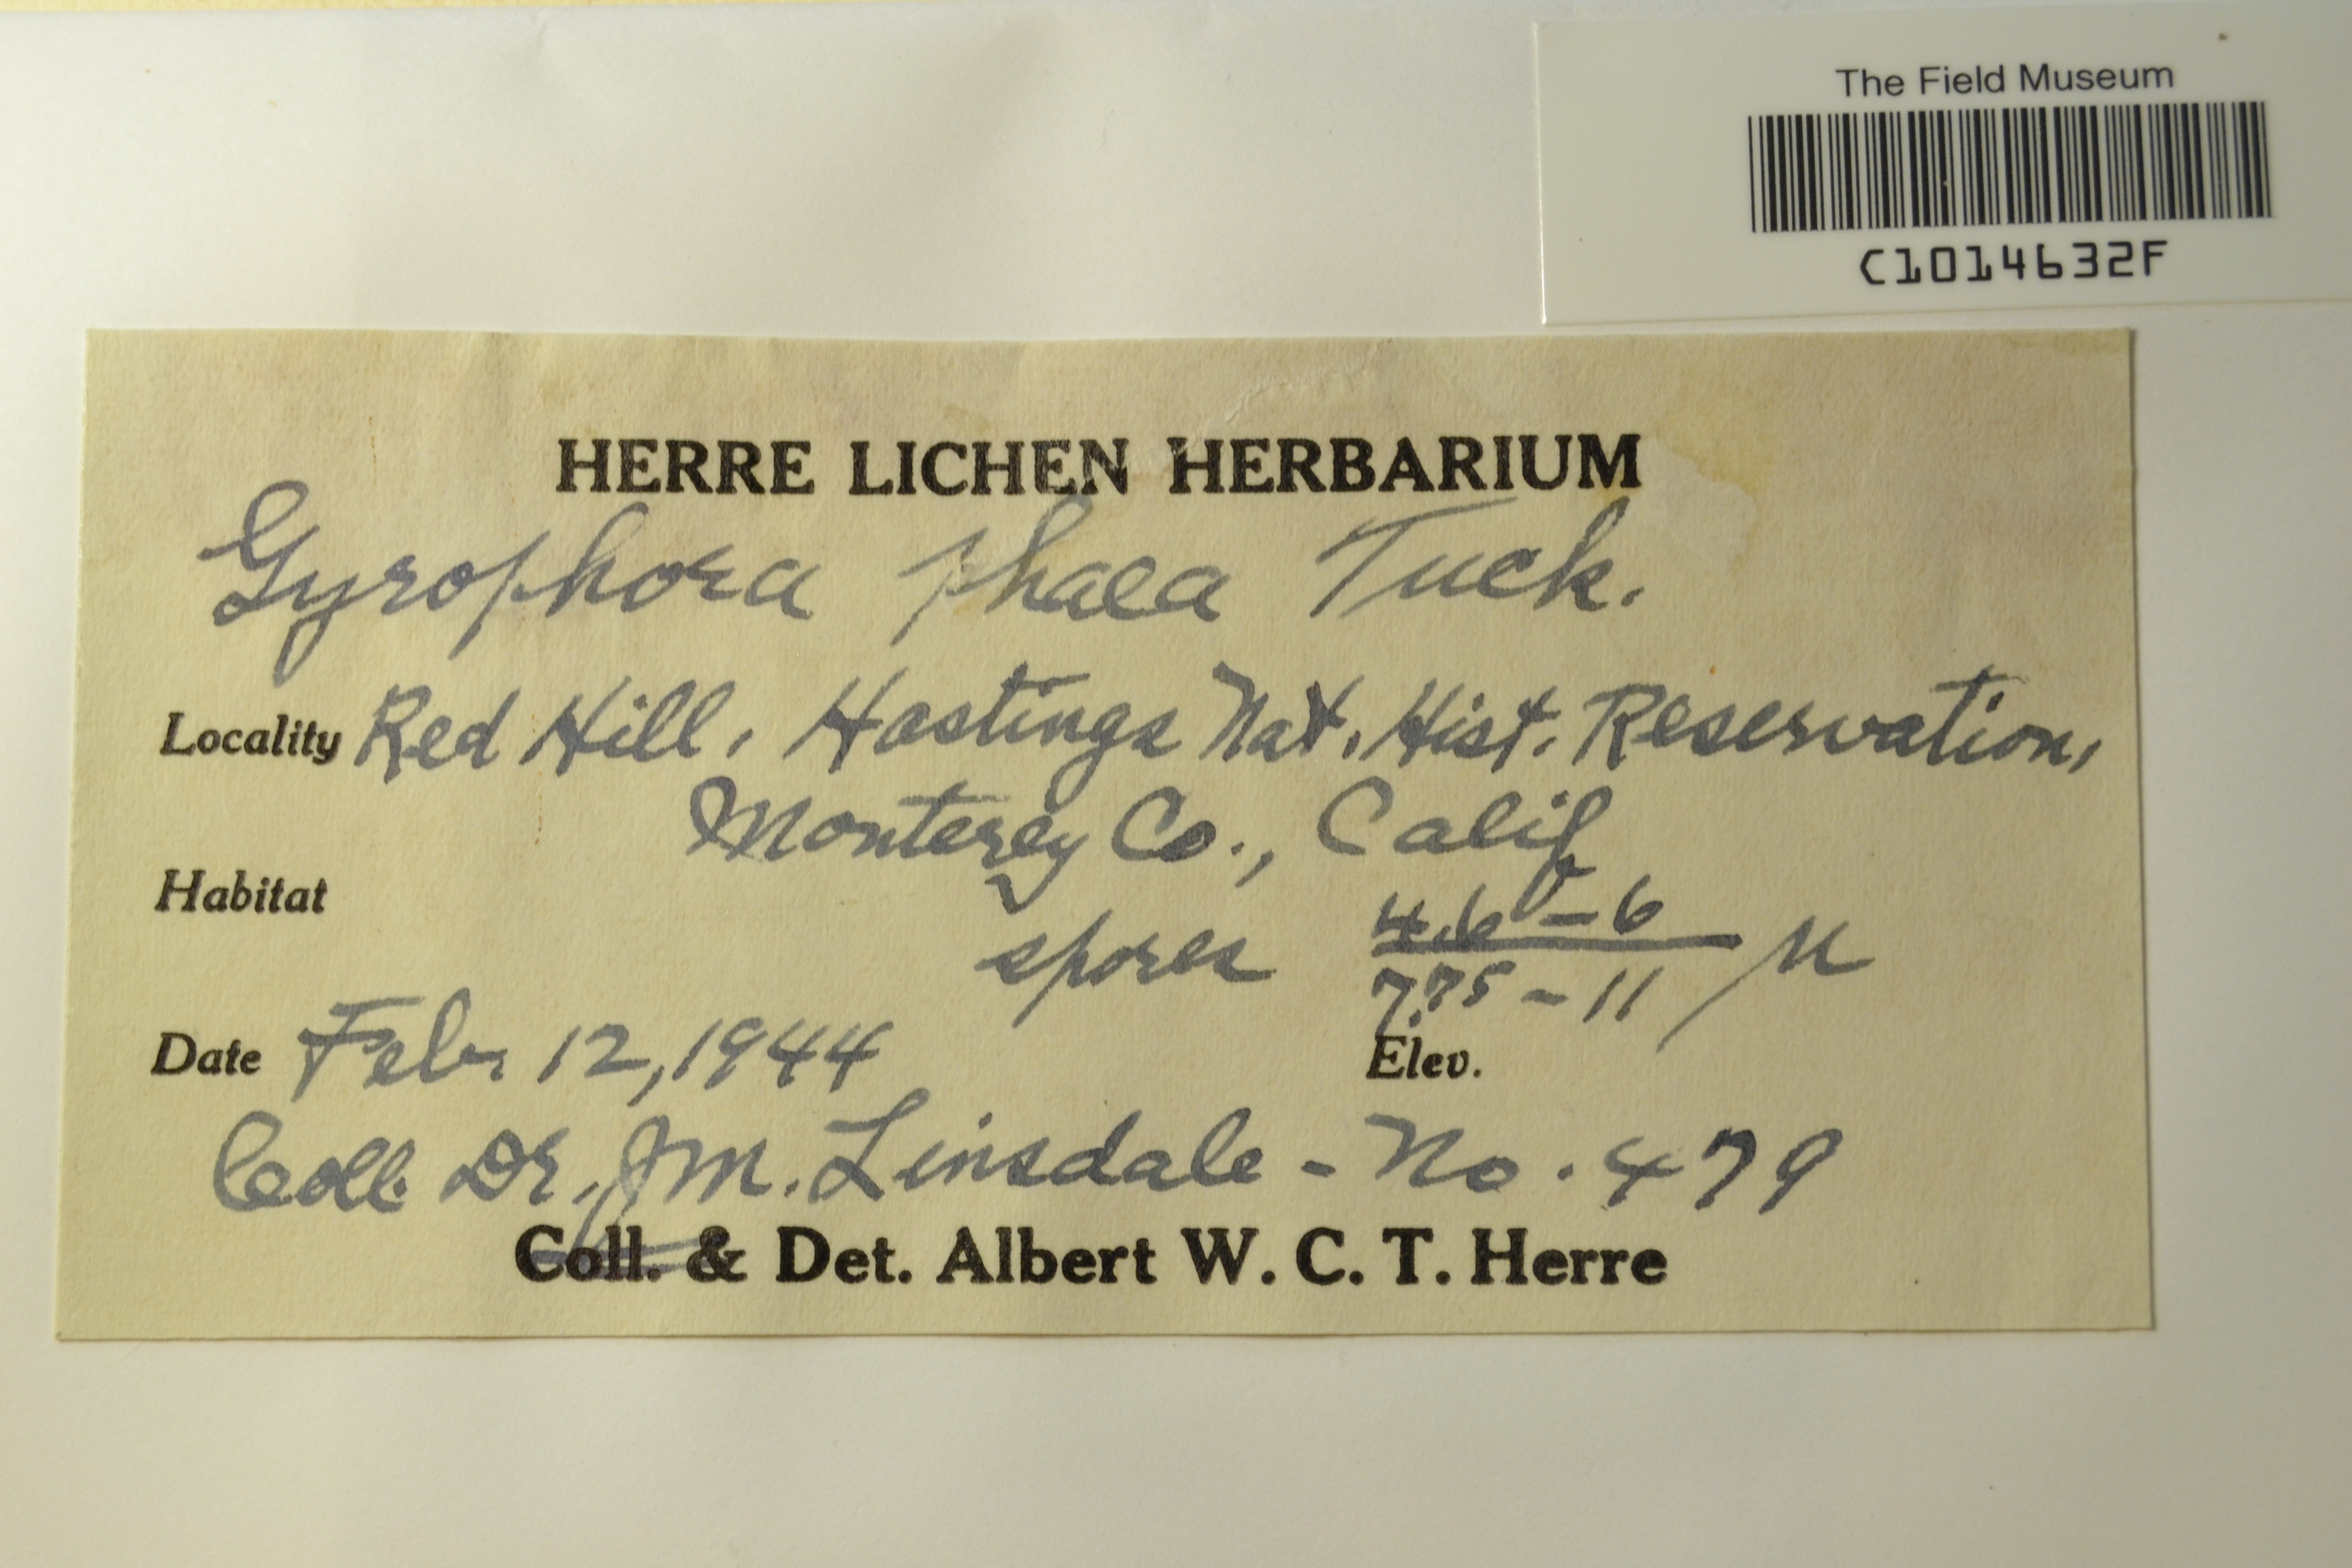 The Field Museum
C1014632F
HERRE LICHEN HERBARIUM
Gyrophora phaea Tuck.
Locality Red Hill, Hastings Nat. Hist. Reservation,
Monterey Co., Calif
Habitat
spores 4.6-6 / 7.75-11 µ
Date Feb. 12, 1944 Elev.
Coll. Dr. J.M. Linsdale - No. 479
Coll. & Det. Albert W. C. T. Herre